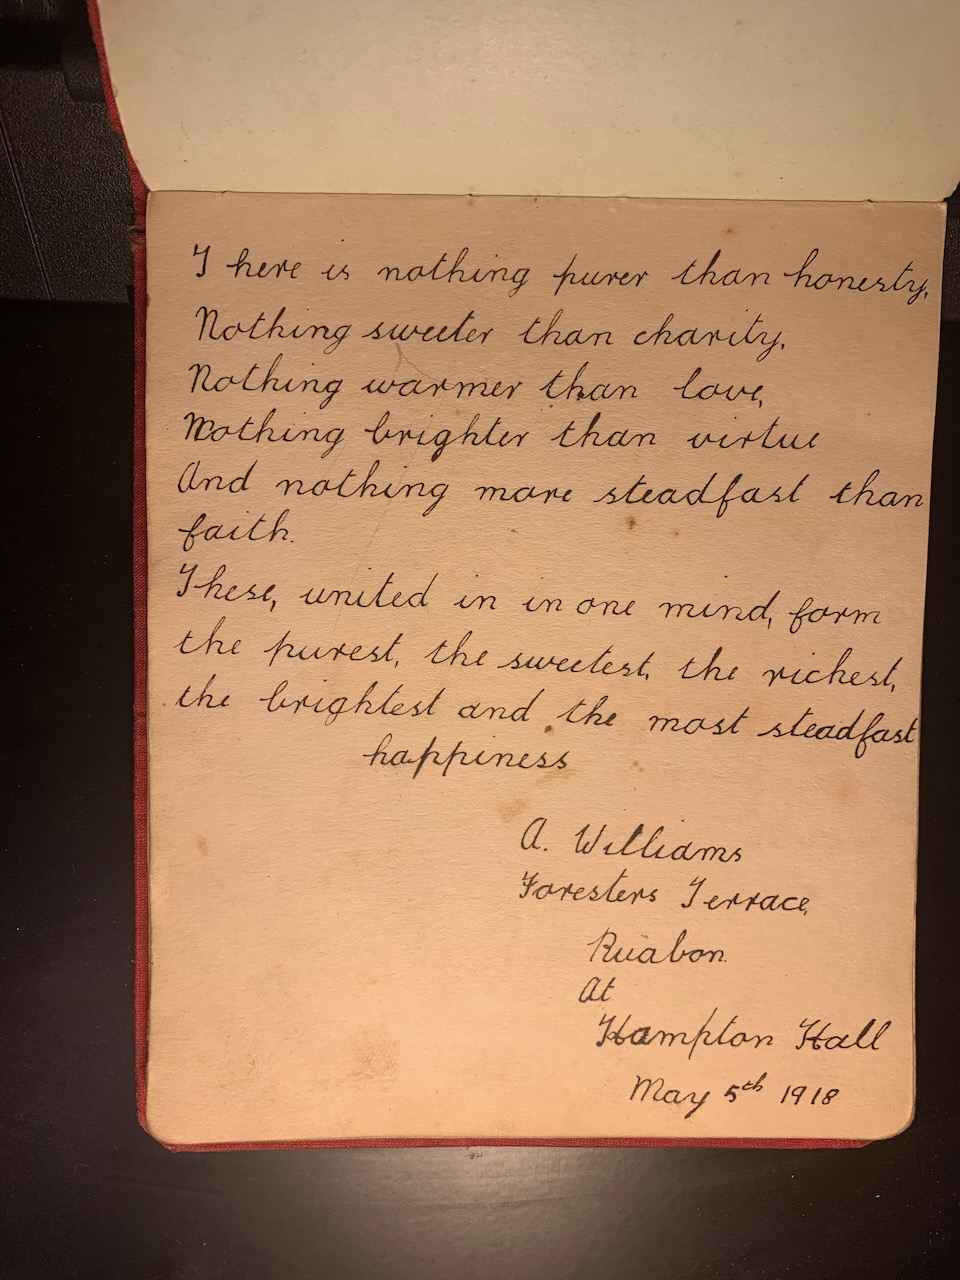 There is nothing purer than honesty,
Nothing sweeter than charity,
Nothing warmer than love,
Nothing brighter than virtue
And nothing more steadfast than
faith.
These, united in in one mind, form
the purest, the sweetest, the richest,
the brightest and the most steadfast
happiness
A. Williams
Foresters Terrace,
Ruabon.
At
Hampton Hall
May 5th 1918